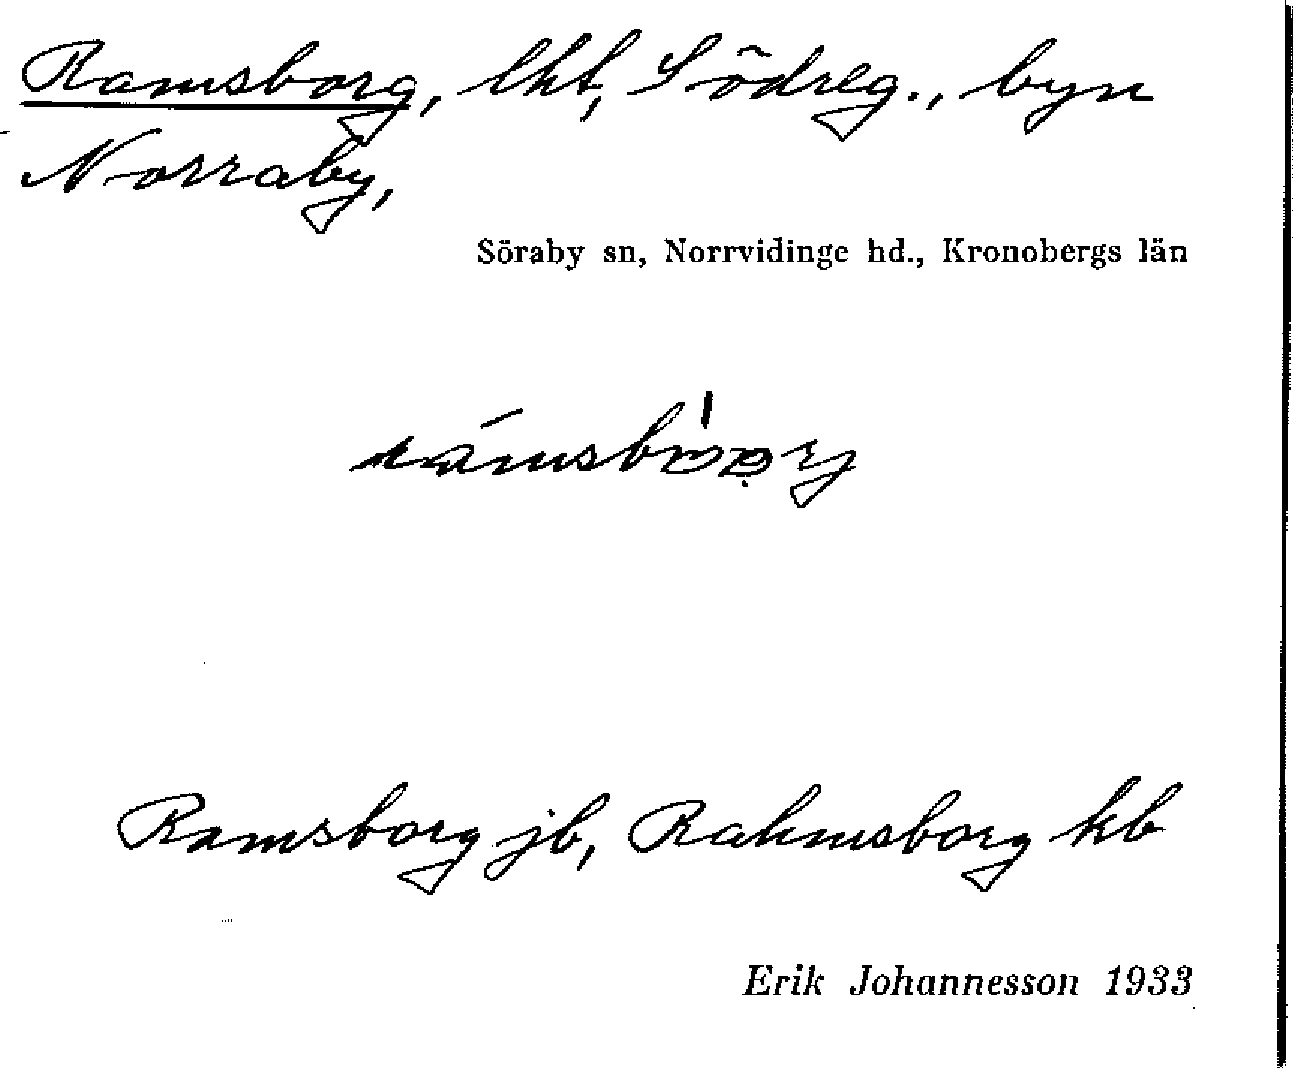 Ramsborg, lht, Södreg., byn
Norraby,
Söraby sn, Norrvidinge hd., Kronobergs län
Ramsborg jb, Rahmsborg kb
Erik Johannesson 1933